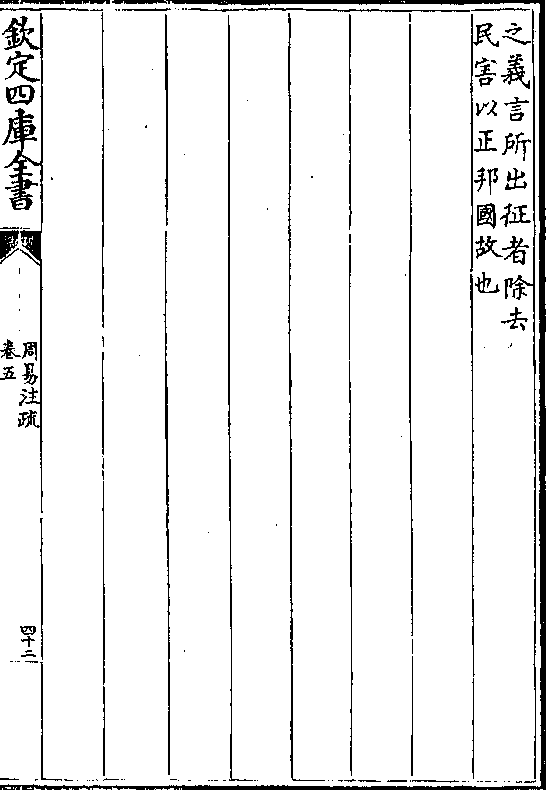 之義言所出征者除去
民害以正邦國故也
欽定四庫全書
周易注疏
卷五
四十二